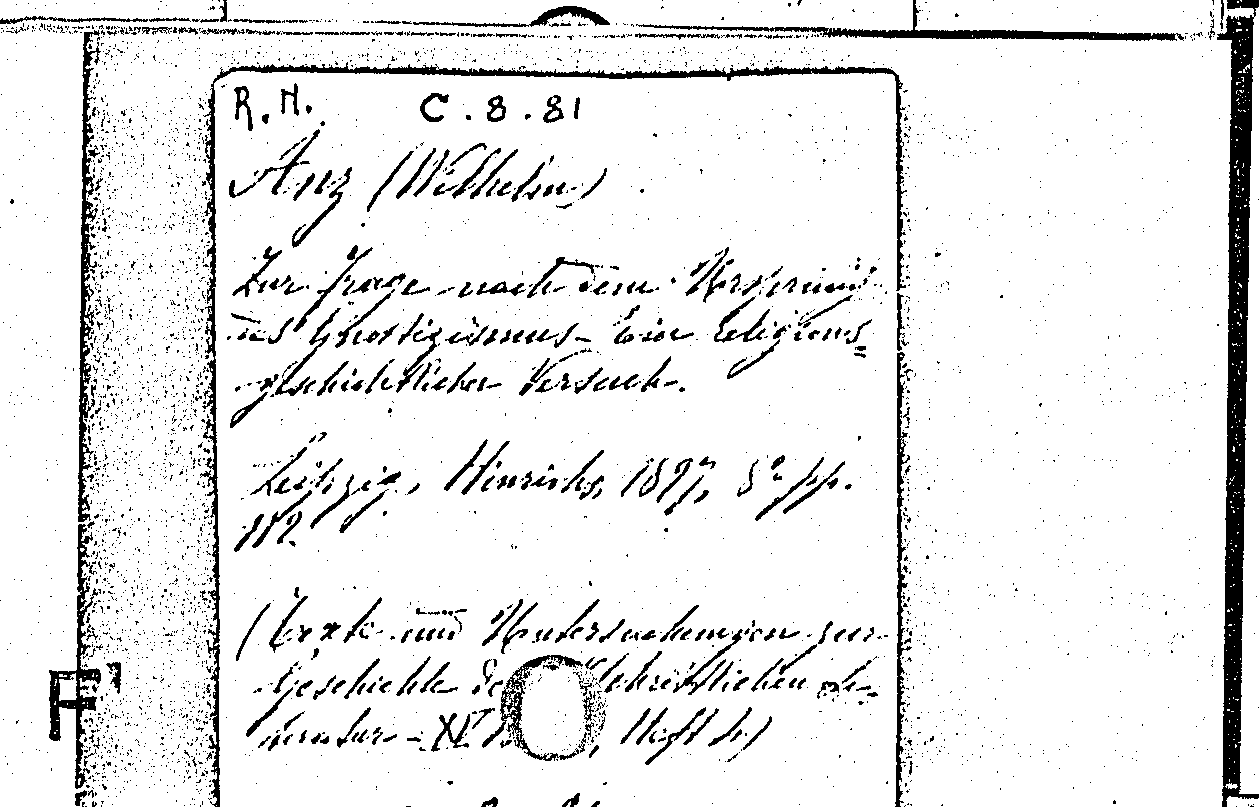 R.N. C.8.81
Anz (Wilhelm)
Zur Frage nach dem Ursprung
des Gnostizismus - Ein religions=
geschichtlicher Versuch.
Leipzig, Hinrichs, 1897, 8° pp.
112.
(Texte und Untersuchungen zur
Geschichte der altchristlichen Li-
teratur - XV, Heft 4.)